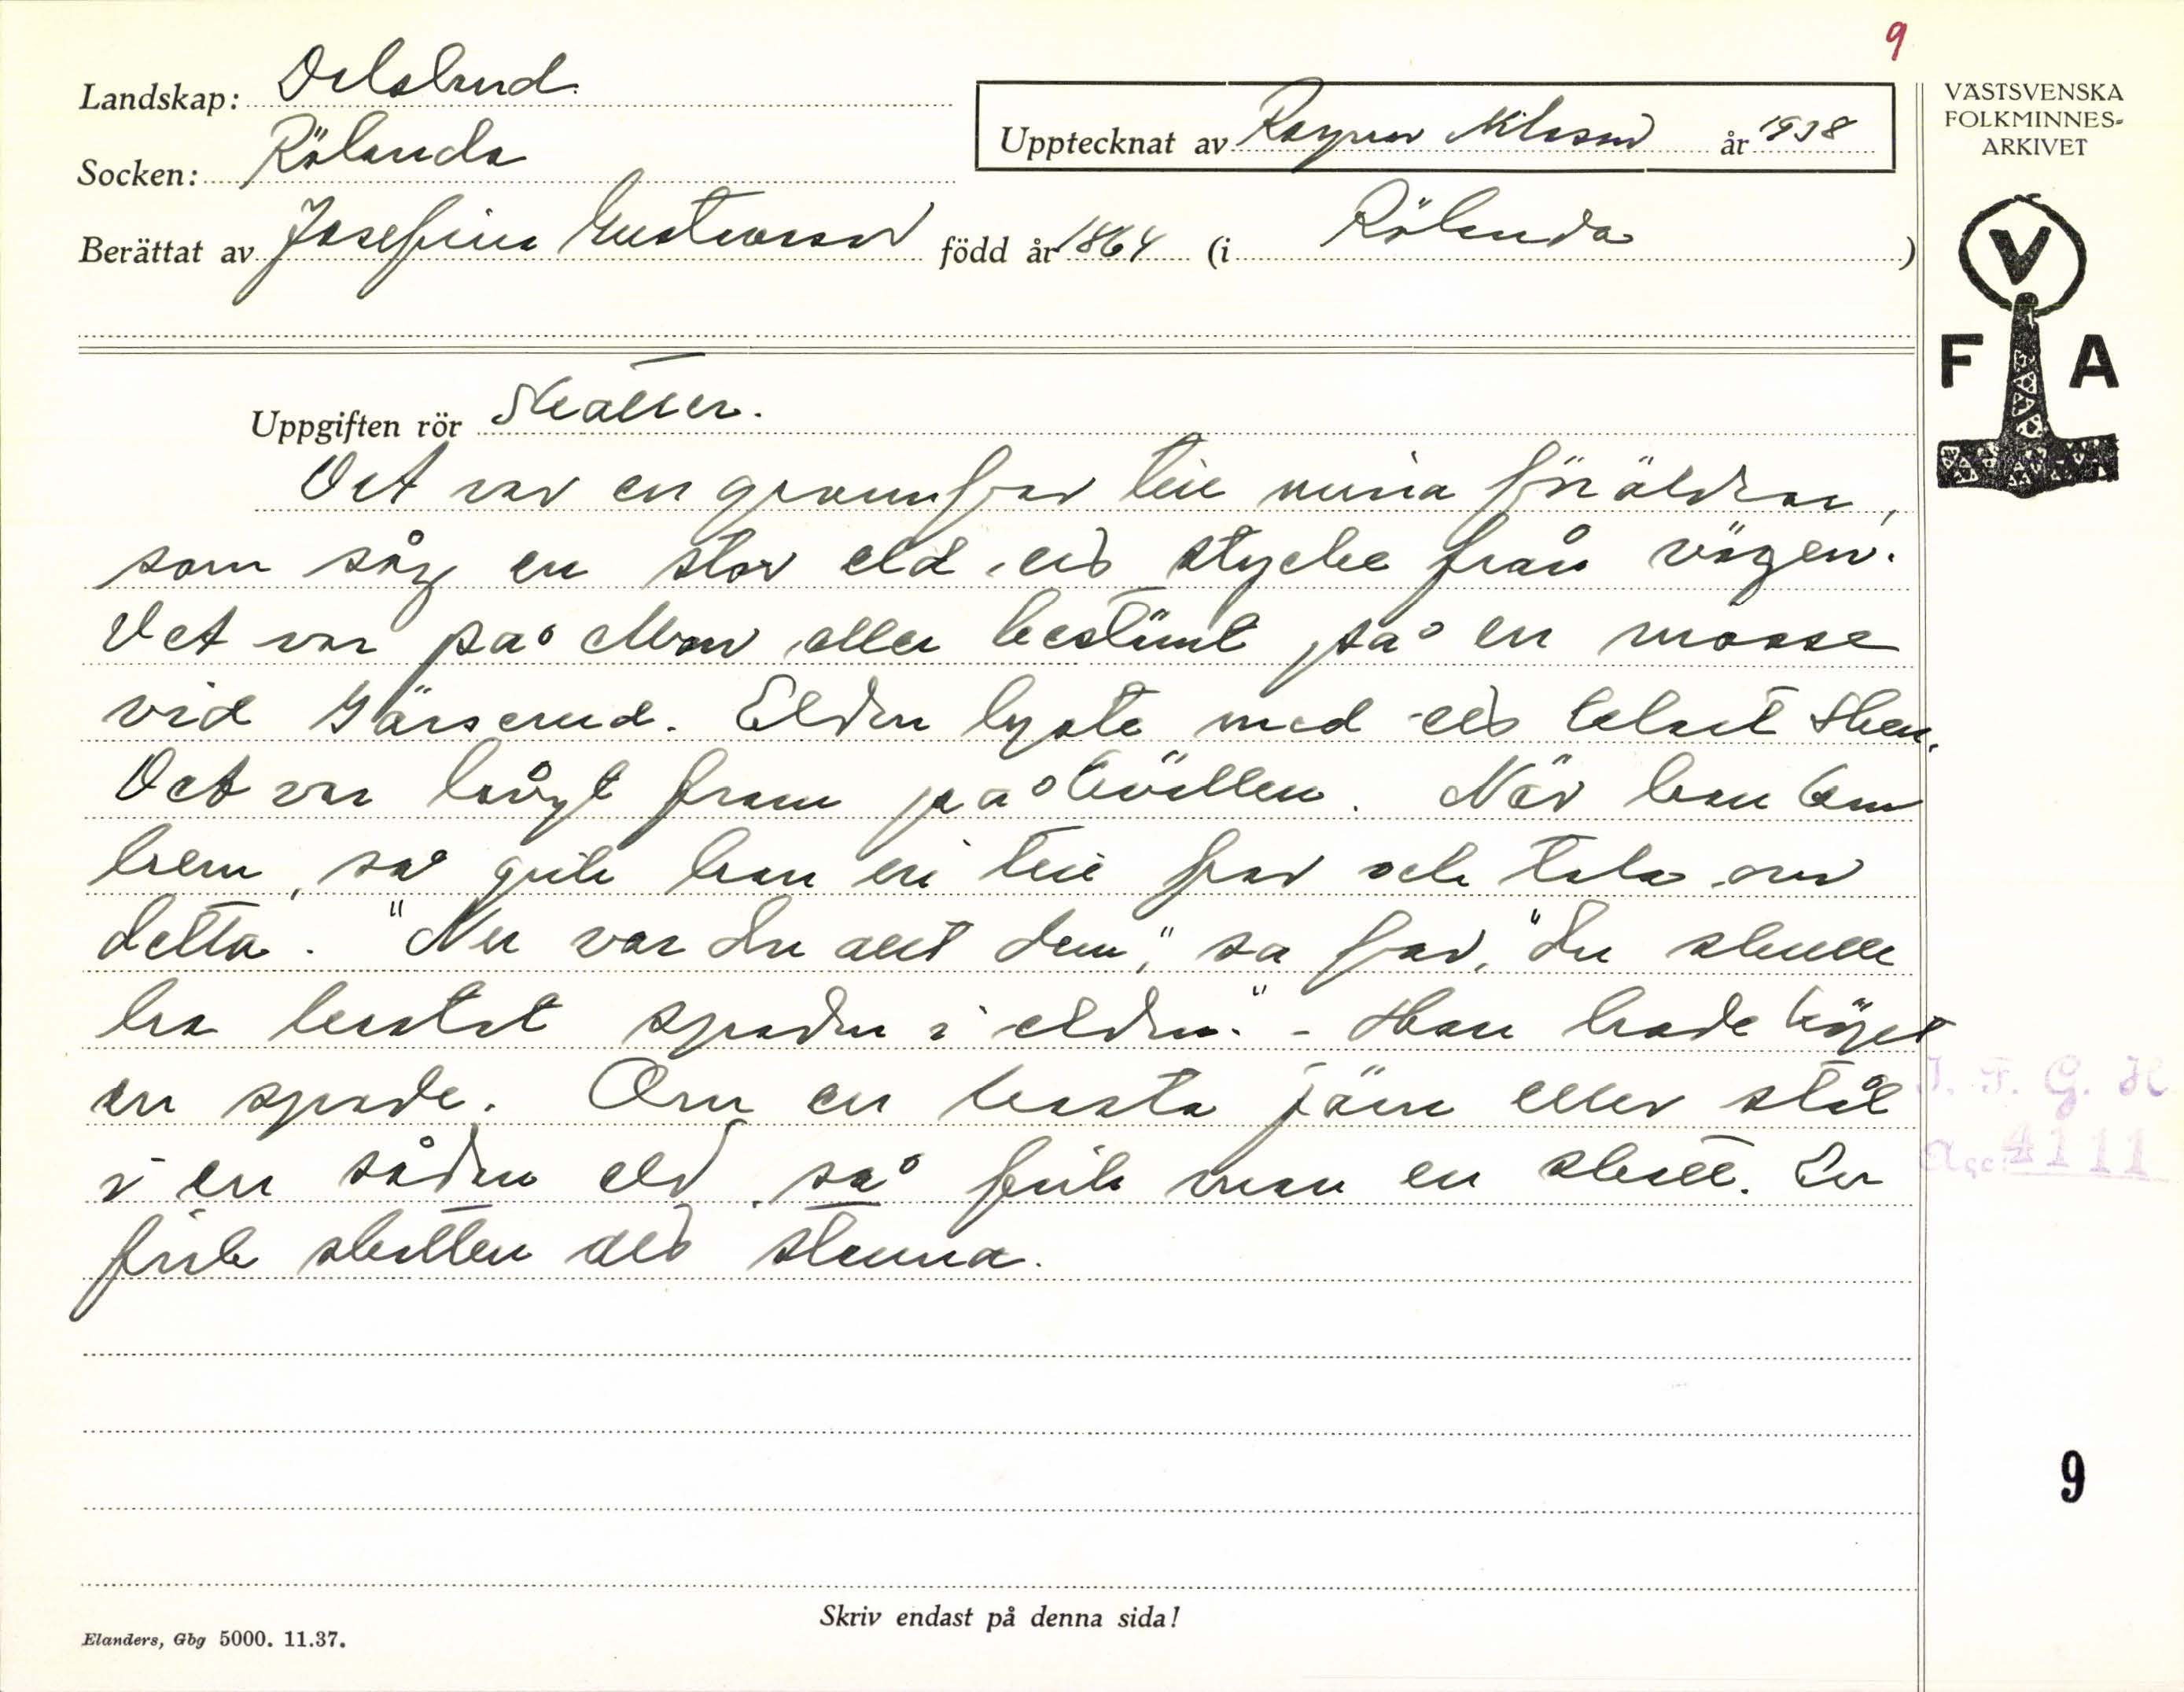 9
Landskap: Dalsland
Socken: Rölanda
Upptecknat av Ragnar Nilsson år 1938
Berättat av Josefina Gustavsson född år 1864 (i Rölanda)
VÄSTSVENSKA
FOLKMINNES-
ARKIVET
V
F A
Uppgiften rör Skatter.
Det var en grannfar till mina föräldrar,
som såg en stor eld ett stycke från vägen.
Det var på Mon eller bestämt på en mosse
vid Gärserud. Elden lyste med ett blått sken.
Det var långt fram på kvällen. När han kom
hem, så gick han in till far och tala om
detta. "Nu var du allt dum," sa far, "du skulle
ha kastat spaden i elden." - Han hade köpt
en spade. Om en kasta järn eller stål
i en sådan eld så fick man en skatt. Då
fick skatten att stanna.
I. F. G. H
Acc. 4111
9
Skriv endast på denna sida!
Elanders, Gbg 5000. 11.37.